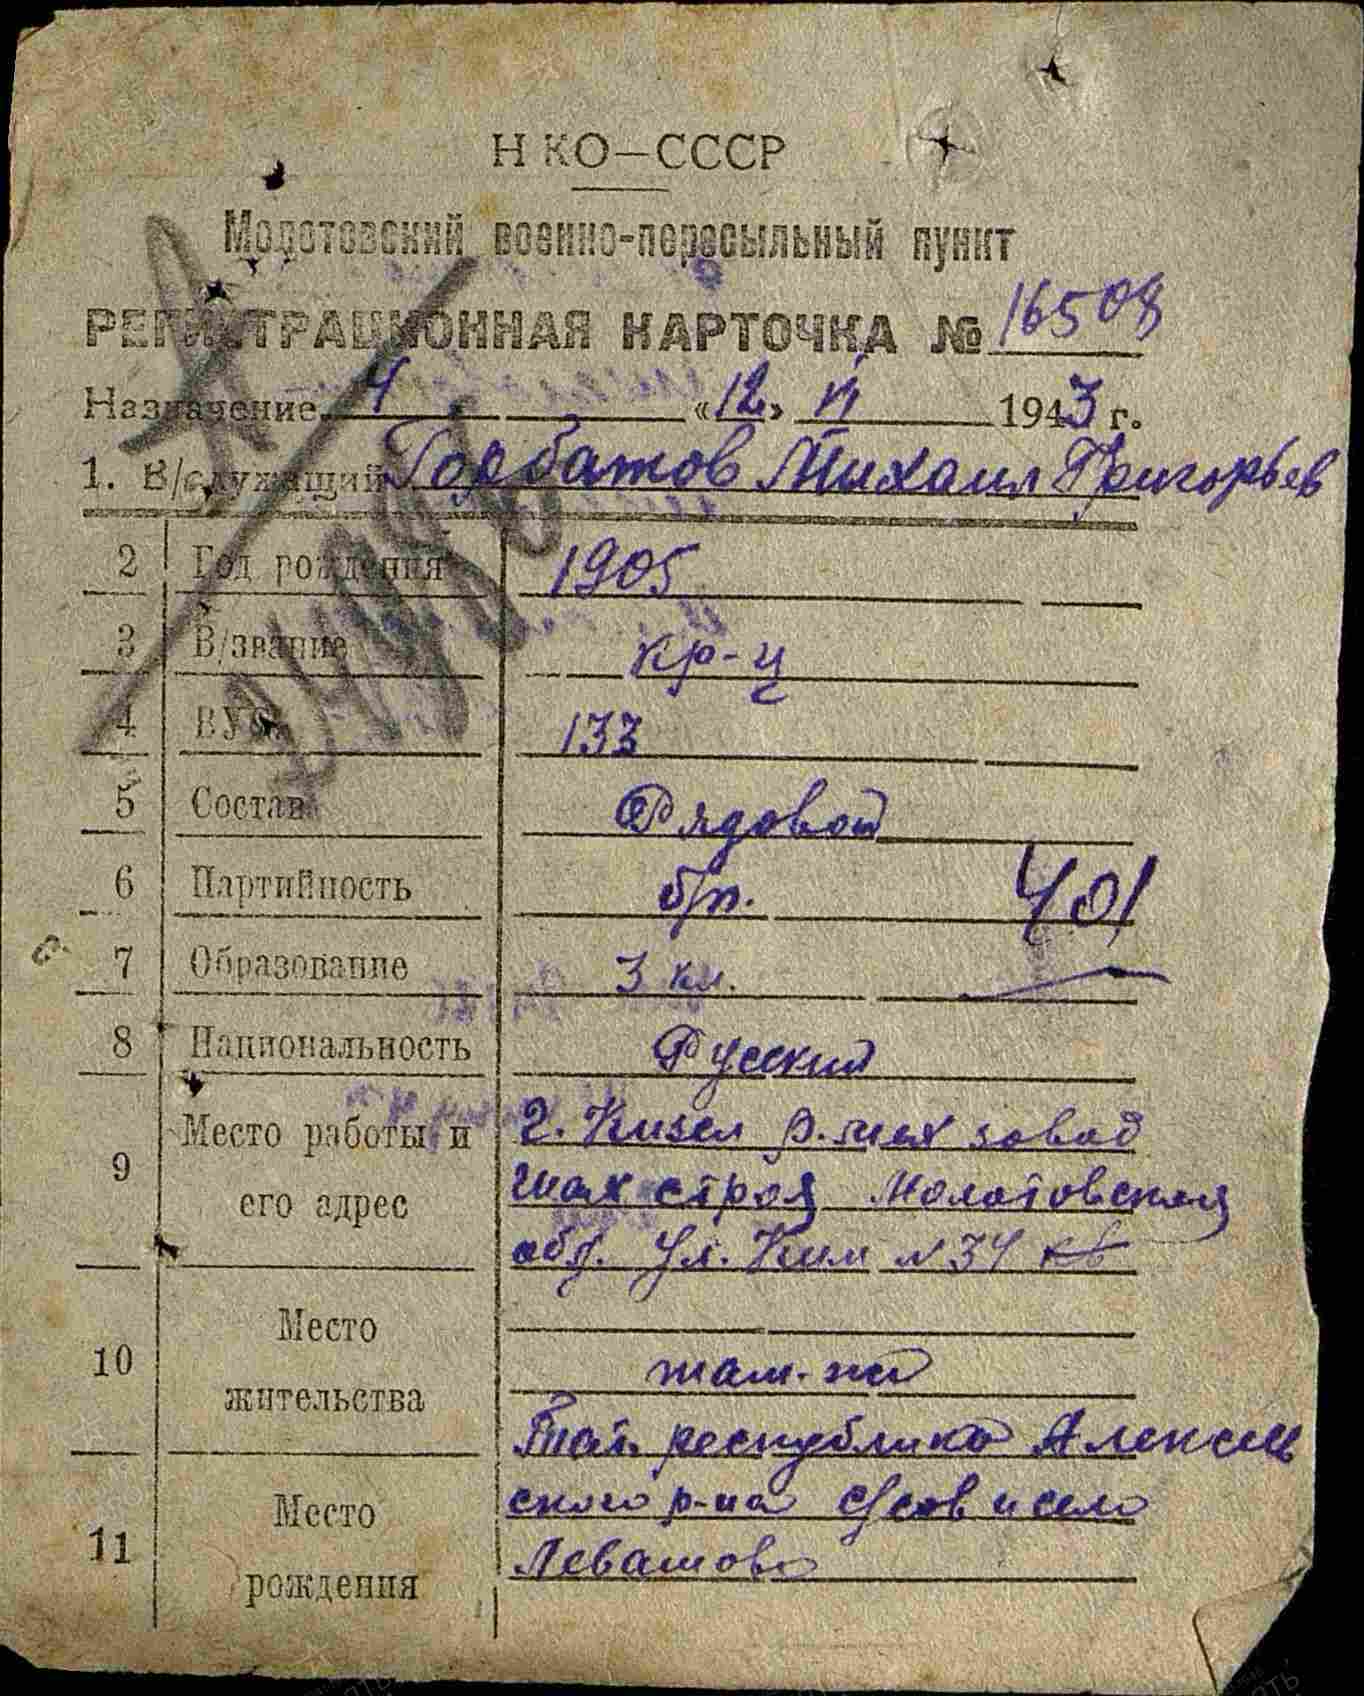 НКО—СССР
Молотовский военно-пересыльный пункт
РЕГИСТРАЦИОННАЯ КАРТОЧКА № 16508
Назначение 4 «12» 1943 г.
1. В/служащий Горбатов Михаил Григорьев
2 Год рождения 1905
3 В/звание кр-ц
4 ВУС 133
5 Состав Рядовой
6 Партийность б/п. 401
7 Образование 3 кл.
8 Национальность Русский
9 Место работы и его адрес г. Кизел р. мех завод
шах строя Молотовская
обл. ул. Ким №34 кв
10 Место жительства там-же
11 Место рождения Тат. республика Алексеев
ского р-на с/сов и село
Левашово